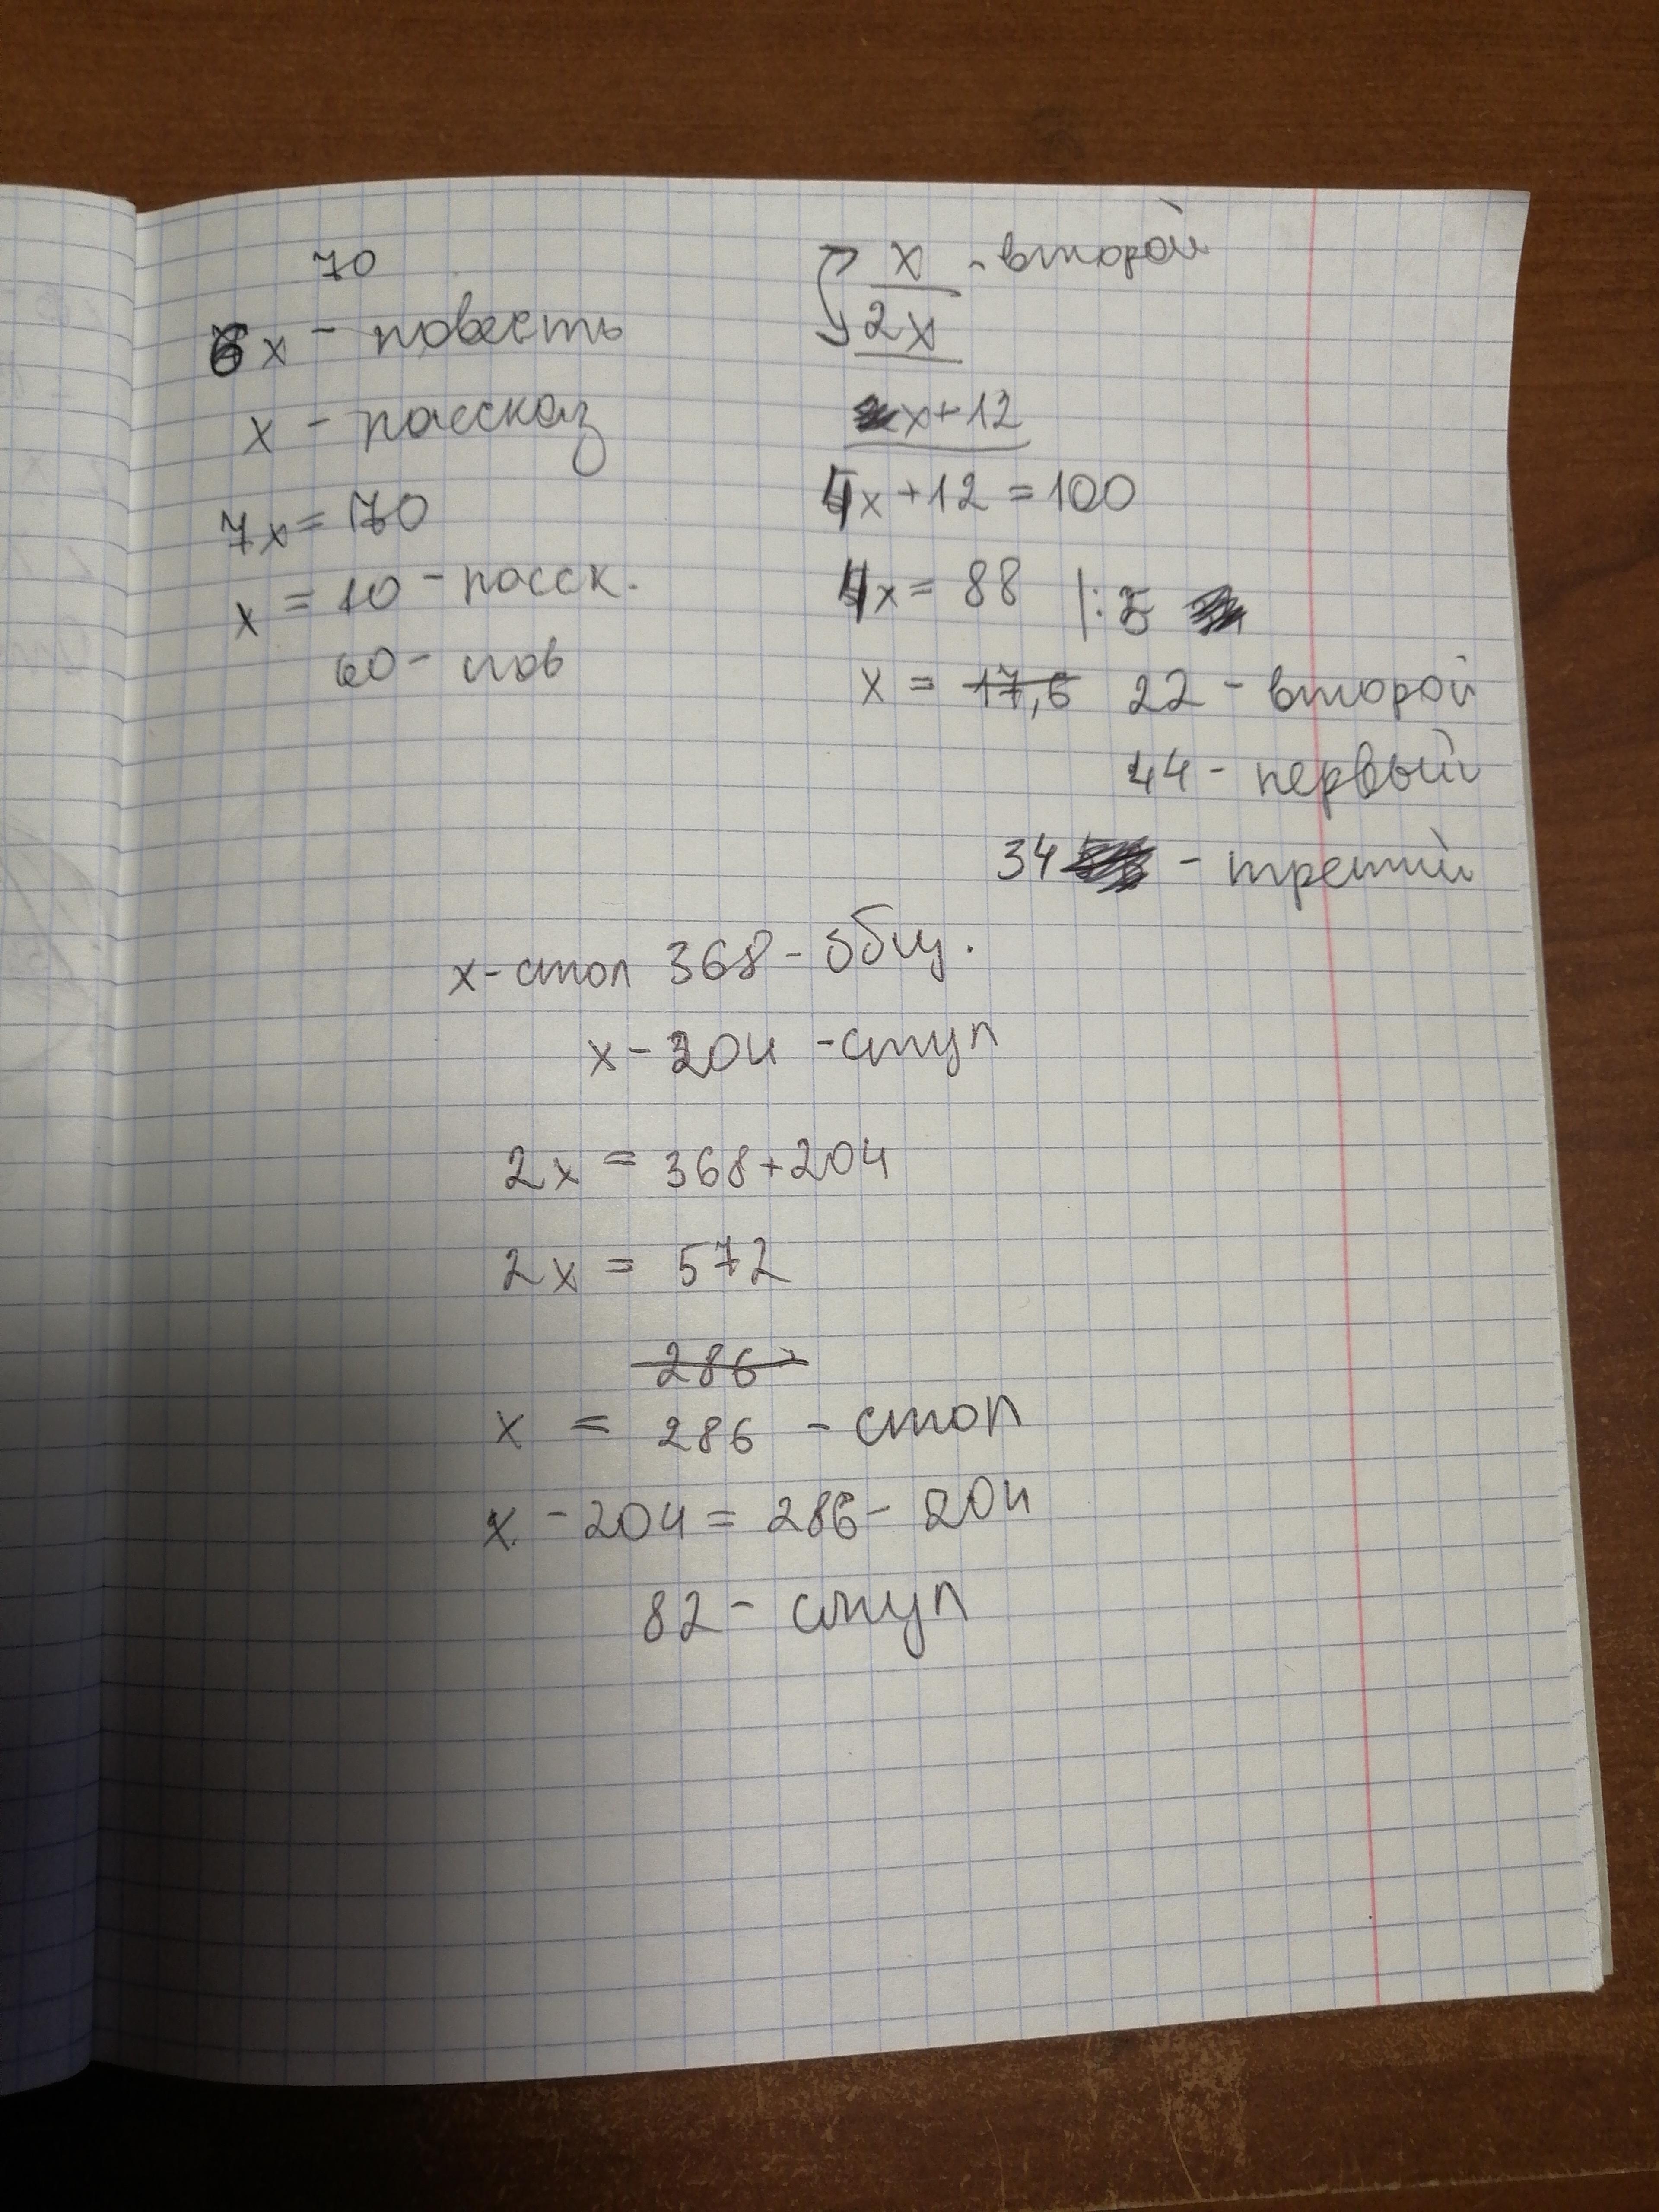 70
6x - повесть
x - рассказ
7x = 70
x = 10 - расск.
60 - пов
x - второй
2x
x + 12
4x + 12 = 100
4x = 88 |: 5
x = 17,6 22 - второй
44 - первый
34 - третий
x - стол 368 - общ.
x - 204 - стул
2x = 368 + 204
2x = 572
286
x = 286 - стол
x - 204 = 286 - 204
82 - стул